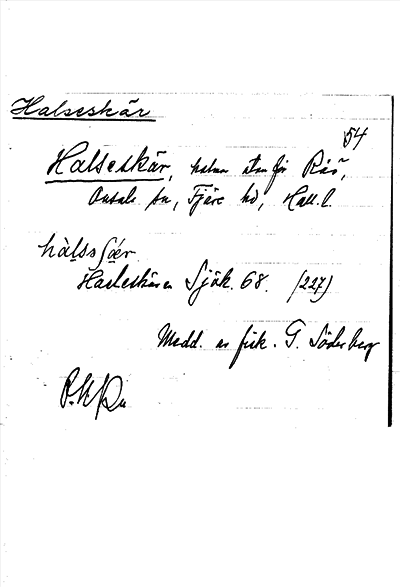 Halseskär
54
Halseskär, holme utanför Råö,
Onsala sn, Fjäre hd, Hall. l.
hàlssʃǽr
Haleskären Sjök. 68. (227)
Medd. av fisk. G. Söderberg